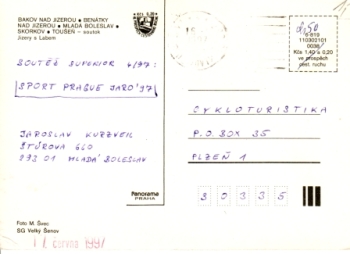 BAKOV NAD JIZEROU • BENÁTKY
NAD JIZEROU • MLADÁ BOLESLAV •
SKORKOV • TOUŠEŇ – soutok
Jizery s Labem
SOUTĚŽ SUPERIOR 4/97:
SPORT PRAGUE JARO '97
JAROSLAV
ŠTÚROVA 660
293 01 MLADÁ BOLESLAV
Panorama
PRAHA
Foto M. Švec
SG Velký Šenov
17. června 1997
6-819
110303101
0036
Kčs 1,40 + 0,20
ve prospěch
pest. ruchu
CYKLOTURISTIKA
P.O. BOX 35
PLZEŇ 1
3 0 3 3 5